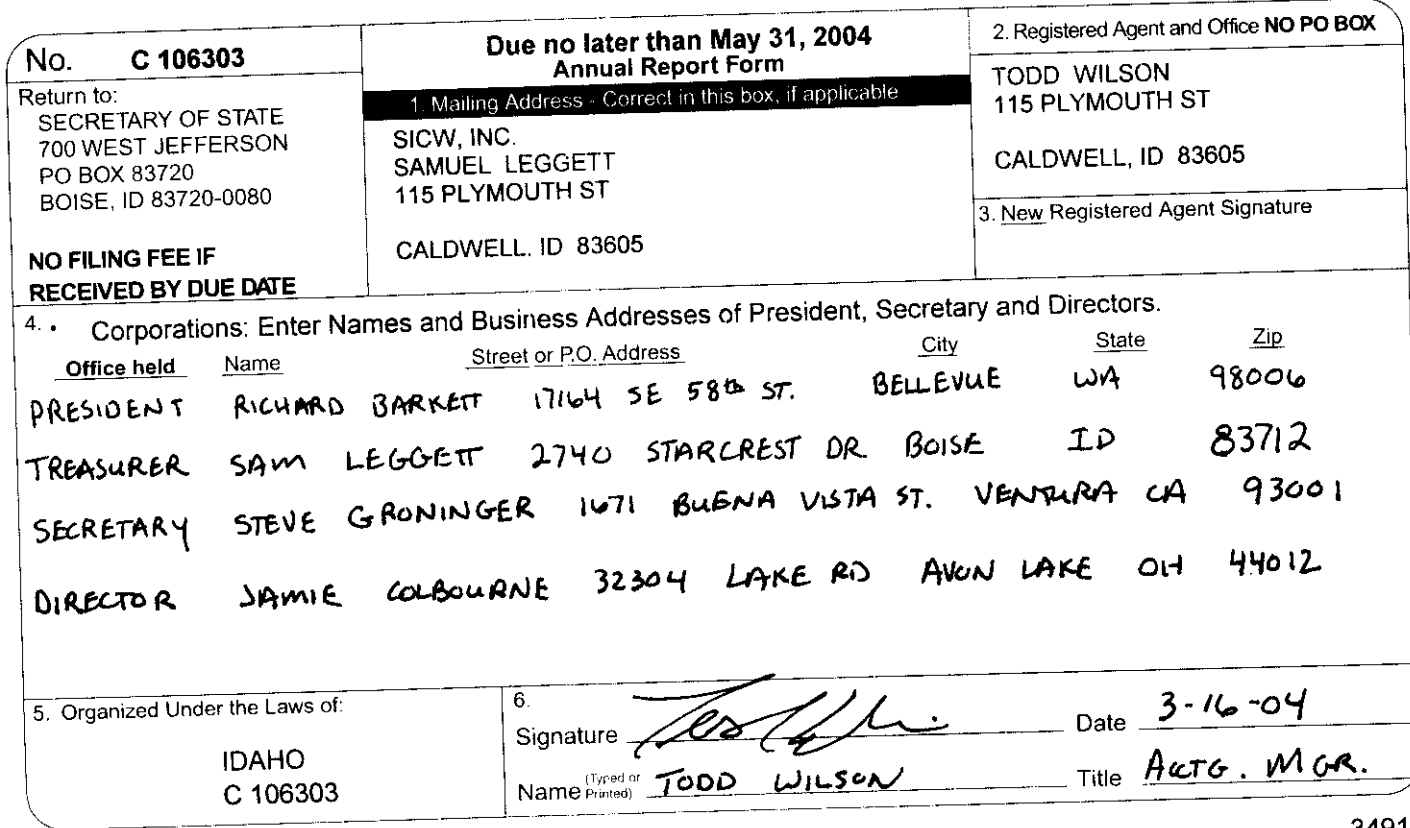 No. C 106303
Return to:
SECRETARY OF STATE
700 WEST JEFFERSON
PO BOX 83720
BOISE, ID 83720-0080
NO FILING FEE IF
RECEIVED BY DUE DATE
Due no later than May 31, 2004
Annual Report Form
1. Mailing Address - Correct in this box, if applicable
SICW, INC.
SAMUEL LEGGETT
115 PLYMOUTH ST
CALDWELL. ID 83605
2. Registered Agent and Office NO PO BOX
TODD WILSON
115 PLYMOUTH ST
CALDWELL, ID 83605
3. New Registered Agent Signature
4. • Corporations: Enter Names and Business Addresses of President, Secretary and Directors.
Office held Name Street or P.O. Address City State Zip
PRESIDENT RICHARD BARKETT 17164 SE 58th ST. BELLEVUE WA 98006
TREASURER SAM LEGGETT 2740 STARCREST DR BOISE ID 83712
SECRETARY STEVE GRONINGER 1671 BUENA VISTA ST. VENTURA CA 93001
DIRECTOR JAMIE COLBOURNE 32304 LAKE RD AVON LAKE OH 44012
5. Organized Under the Laws of:
IDAHO
C 106303
6.
Signature Date 3-16-04
Name (Typed or Printed) TODD WILSON Title ACCTG. MGR.
3491